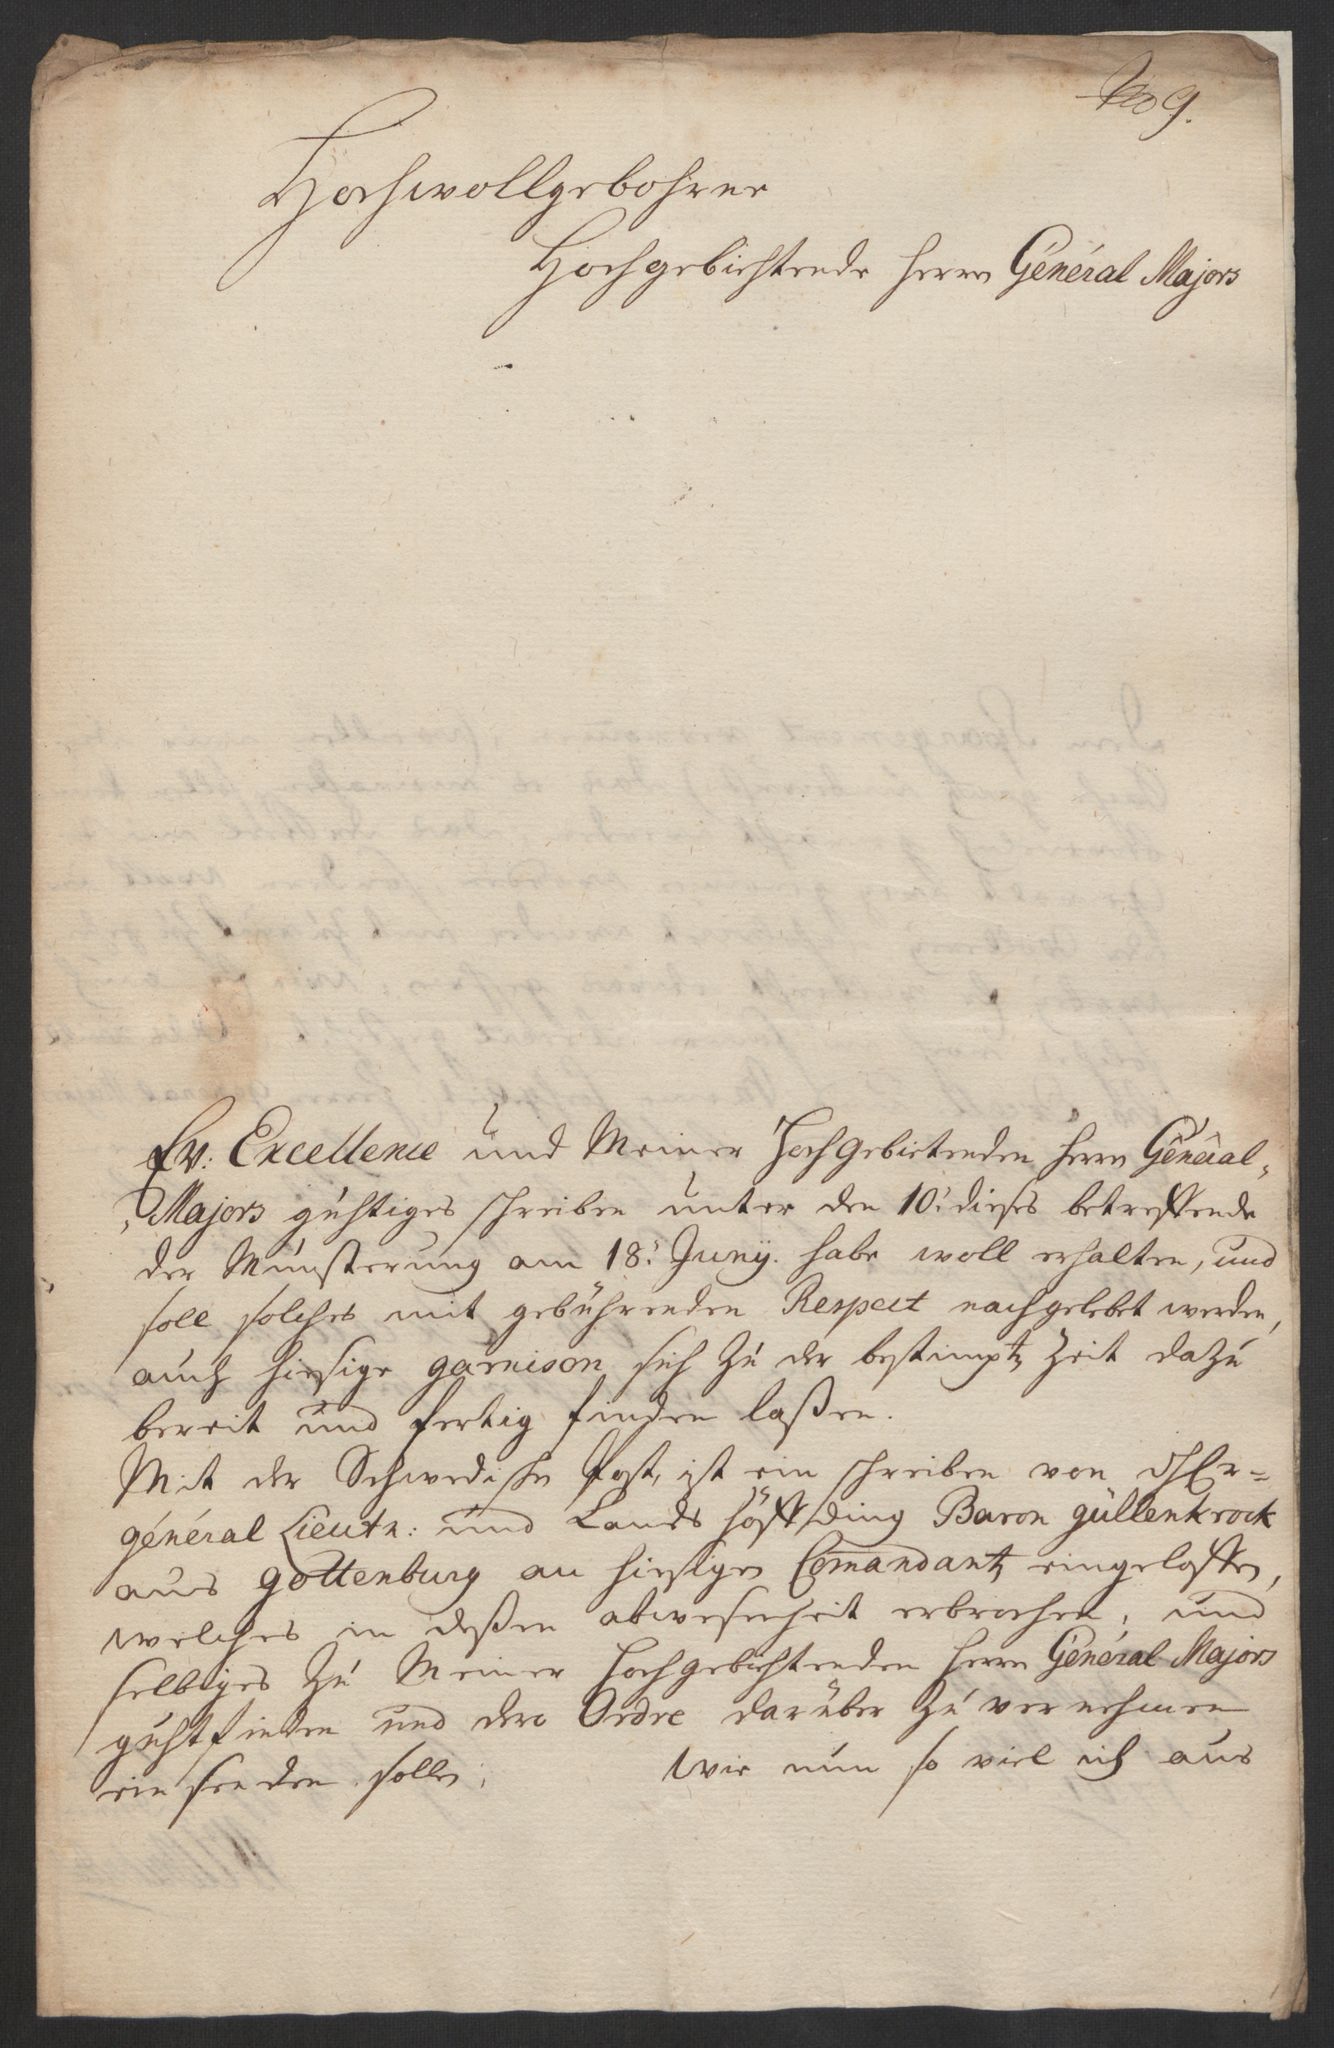 No 9.
Hochwollgebohrner
Hochgebiehtende Herrn Général Majors
Ew: Excellence und Meiner Hochgebietenden Herrn Géneral-
Majors gühtiges schreiben unter den 10: dieses betreffende
der Münsterung am 18: Junÿ. habe woll erhalten, und
soll solches mit gebührenden Respect nachgelebet werden,
auch hiesige garnison sich zu der bestimptn Zeit dazu
bereit und fertig finden laßen.
Mit der Schwedische Post, ist ein schreiben von
général Lieutn: und Lands höffding Baron güllenkrock
aus gottenburg an hiesigen Comandantn eingeloffen,
welches in deßen abwesenheit erbrochen, und
selbiges zu Meiner Hochgebiehtenden Herrn Général Majors
guhtfinden und dero Ordre darüber zu vernehmen
ein senden sollen, Wie nun so viel ich aus